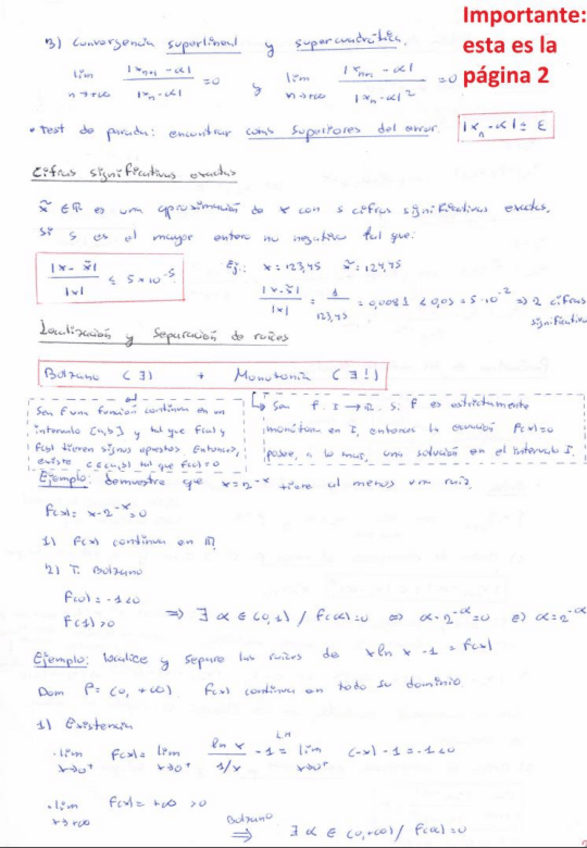 Importante:
esta es la
página 2
3) Convergencia superlineal y supercuadrática.
lim n→+∞ |xₙ₊₁ - α| / |xₙ - α| = 0 y lim n→+∞ |xₙ₊₁ - α| / |xₙ - α|² = 0
• Test de parada: encontrar cotas superiores del error. |xₙ - α| ≤ ε
Cifras significativas exactas
x̃ ∈ ℝ es una aproximación de x con s cifras significativas exactas,
si s es el mayor entero no negativo tal que:
|x - x̃| / |x| ≤ 5 × 10⁻ˢ
Ej: x = 123,45 x̃ = 124,45
|x - x̃| / |x| = 1 / 123,45 = 0,0081 < 0,05 = 5·10⁻² ⇒ 2 cifras
significativ
Localización y separación de raíces
Bolzano (∃) + Monotonía (∃!)
Sea F una función continua en un
intervalo [a,b] y tal que F(a) y
F(b) tienen signos opuestos. Entonces,
existe c ∈ (a,b) tal que F(c) = 0
Sea f: I → ℝ. Si f es estrictamente
monótona en I, entonces la ecuación f(x) = 0
posee, a lo más, una solución en el intervalo I.
Ejemplo: Demuestre que x = 2⁻ˣ tiene al menos una raíz.
f(x) = x - 2⁻ˣ = 0
1) f(x) continua en ℝ
2) T. Bolzano
f(0) = -1 < 0
f(1) > 0
⇒ ∃ α ∈ (0,1) / f(α) = 0 ⇔ α - 2⁻ᵅ = 0 ⇔ α = 2⁻ᵅ
Ejemplo: Localice y separe las raíces de x ln x - 1 = f(x)
Dom f = (0, +∞). f(x) continua en todo su dominio.
1) Existencia
· lim x→0⁺ f(x) = lim x→0⁺ ln x / 1/x - 1 =ᴸᴴ lim x→0⁺ (-x) - 1 = -1 < 0
· lim x→+∞ f(x) = +∞ > 0
Bolzano ⇒ ∃ α ∈ (0,+∞) / f(α) = 0